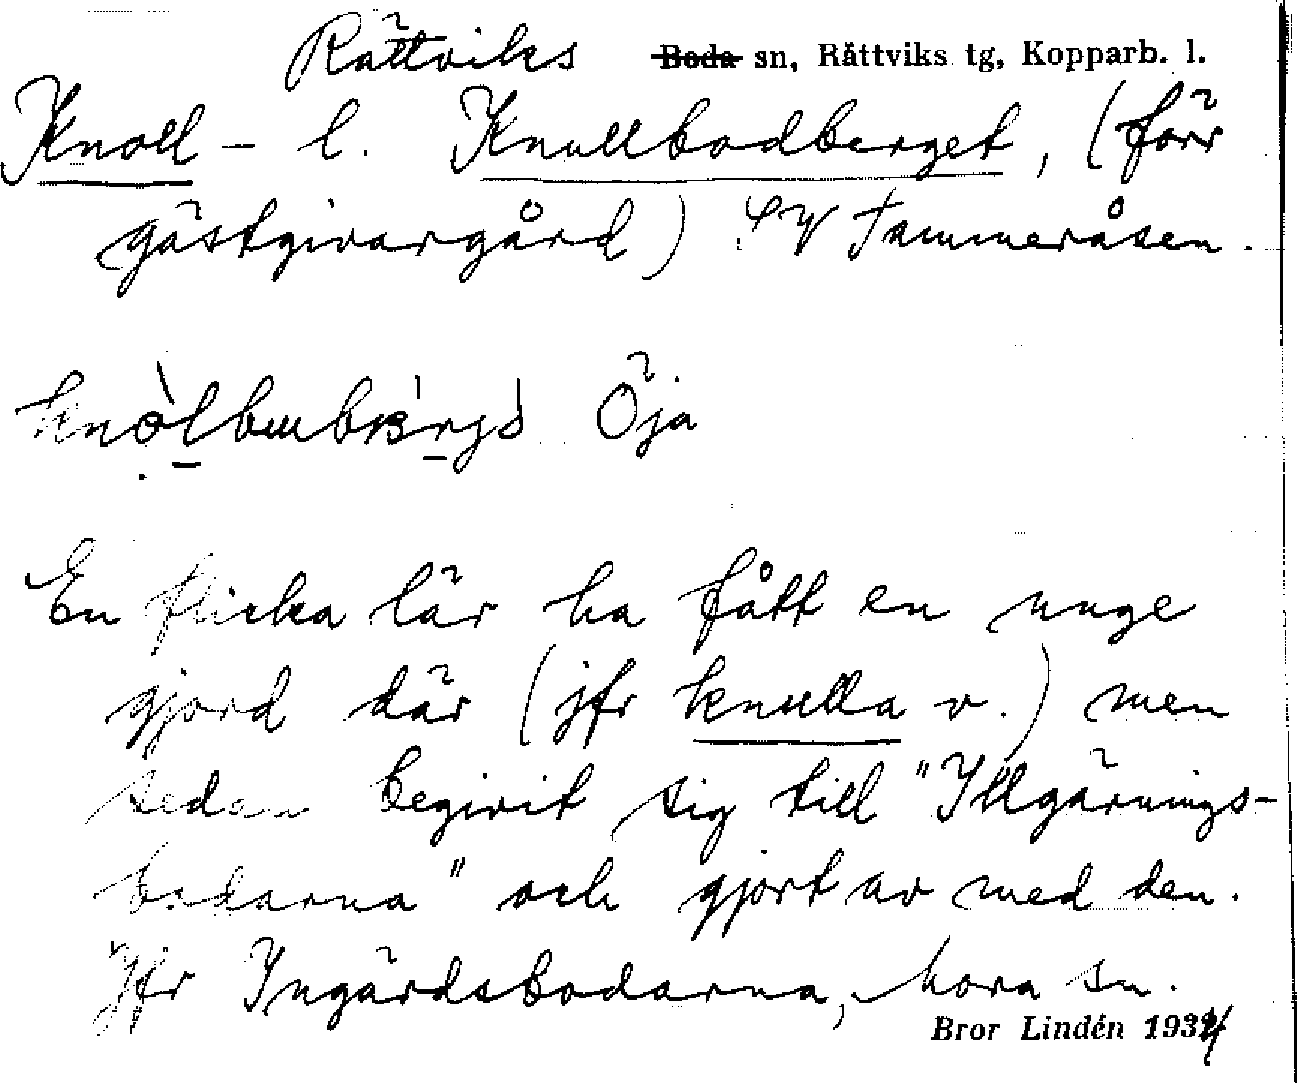 Rättviks Boda sn, Rättviks tg, Kopparb. l.
Knoll- l. Knullbodberget, (förr
gästgivargård) SV Tammeråsen.
Öja
En flicka lär ha fått en unge
gjord där (jfr knulla v.) men
sedan begivit sig till "Illgärnings-
bodarna" och gjort av med den.
Jfr Ingärdsbodarna, Mora sn.
Bror Lindén 1934